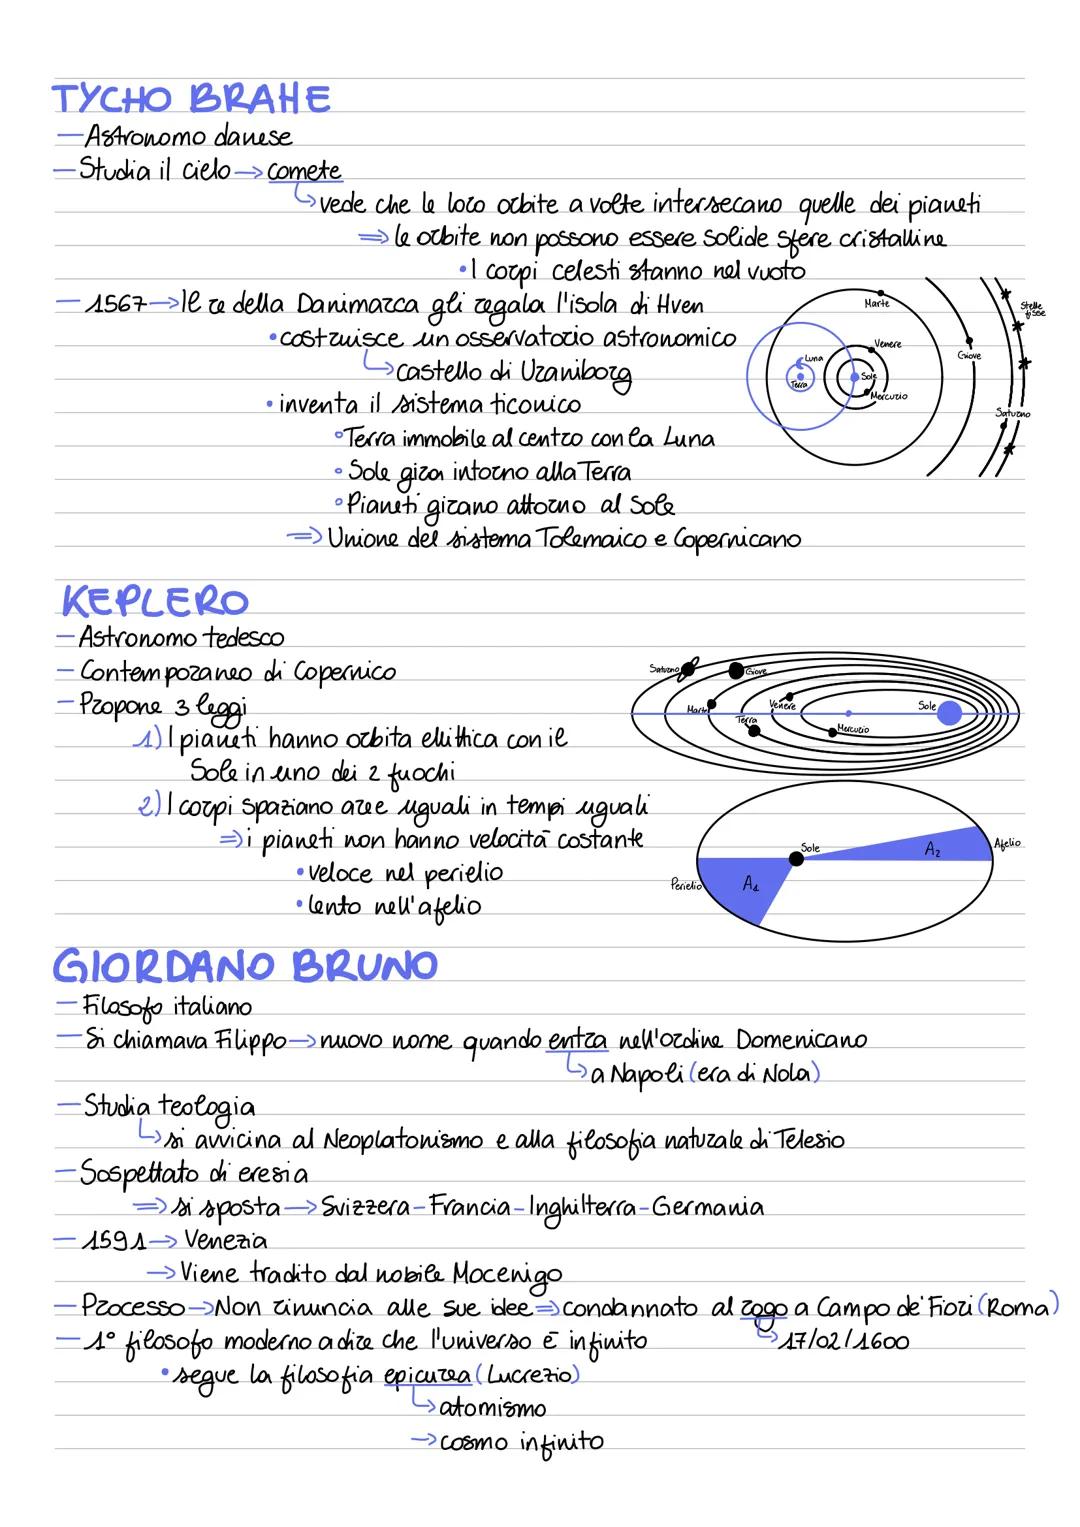 TYCHO BRAHE
— Astronomo danese
— Studia il cielo → comete
↳ vede che le loro orbite a volte intersecano quelle dei pianeti
⇒ le orbite non possono essere solide sfere cristalline
• I corpi celesti stanno nel vuoto
— 1567 → Il re della Danimarca gli regala l'isola di Hven
• costruisce un osservatorio astronomico
↳ castello di Uraniborg
• inventa il sistema ticonico
° Terra immobile al centro con la Luna
° Sole gira intorno alla Terra
° Pianeti girano attorno al Sole
⇒ Unione del sistema Tolemaico e Copernicano
Marte
Stelle fisse
Venere
Giove
Luna
Terra
Sole
Mercurio
Saturno
KEPLERO
— Astronomo tedesco
— Contemporaneo di Copernico
— Propone 3 leggi
1) I pianeti hanno orbita ellittica con il
Sole in uno dei 2 fuochi
2) I corpi spaziano aree uguali in tempi uguali
⇒ i pianeti non hanno velocità costante
• veloce nel perielio
• lento nell'afelio
Saturno
Giove
Marte
Venere
Sole
Terra
Mercurio
Sole
A2
Afelio
Perielio
A1
GIORDANO BRUNO
— Filosofo italiano
— Si chiamava Filippo → nuovo nome quando entra nell'ordine Domenicano
↳ a Napoli (era di Nola)
— Studia teologia
↳ si avvicina al Neoplatonismo e alla filosofia naturale di Telesio
— Sospettato di eresia
⇒ si sposta → Svizzera - Francia - Inghilterra - Germania
— 1591 → Venezia
→ Viene tradito dal nobile Mocenigo
— Processo → Non rinuncia alle sue idee ⇒ condannato al rogo a Campo de' Fiori (Roma)
↳ 17/02/1600
— 1° filosofo moderno a dire che l'universo è infinito
• segue la filosofia epicurea (Lucrezio)
↳ atomismo
→ cosmo infinito